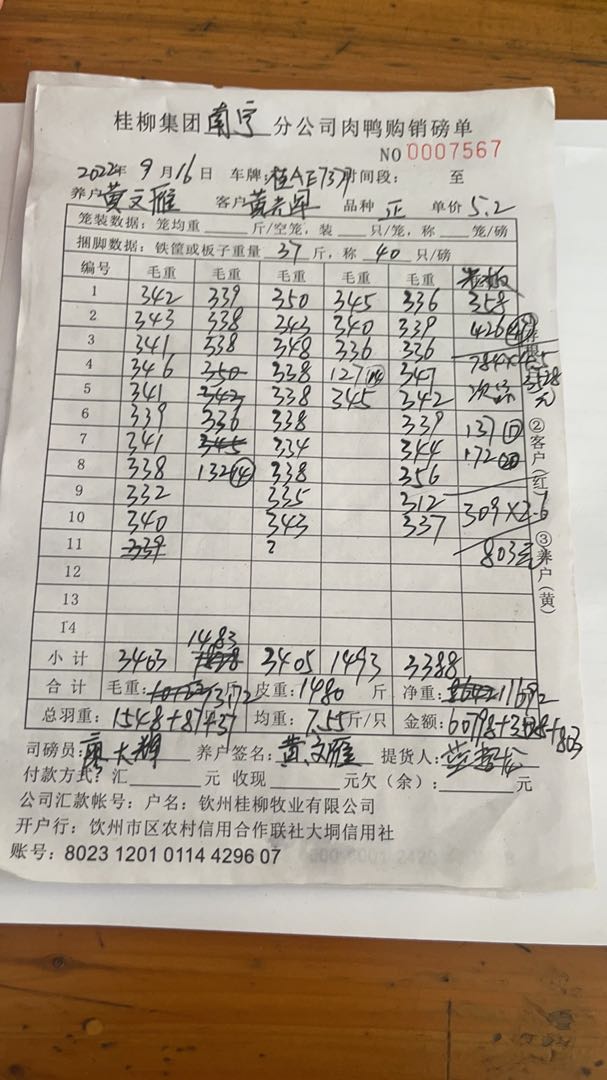 桂柳集团南宁分公司肉鸭购销磅单
NO 0007567
2022年9月16日 车牌:桂AE737 时间段: 至
养户黄文雁 客户 品种正 单价5.2
笼装数据:笼均重 斤/空笼,装 只/笼,称 笼/磅
捆脚数据:铁筐或板子重量37斤,称40只/磅
编号 毛重 毛重 毛重 毛重 毛重
1 342 339 350 345 336 358
2 343 338 343 340 339 426
3 341 338 348 336 336
4 346 350 338 127 347
5 341 342 338 345 342 次品
6 339 336 338 339 137
7 341 345 334 344 172
8 338 132⑭ 338 356
9 332 335 312 309×2.6
10 340 343 337
11 339 803元
12
13
14 1483
小计 3403 3405 1493 3388
合计 毛重:13172斤 皮重:1480斤 净重:11692
总羽重:1548+87+37 均重:7.55斤/只 金额:60798+3528+803
司磅员: 养户签名:黄文雁 提货人:
付款方式?汇 元 收现 元欠(余): 元
公司汇款帐号:户名:钦州桂柳牧业有限公司
开户行:饮州市区农村信用合作联社大垌信用社
账号:8023 1201 0114 4296 07
②客户(红)
③养户(黄)